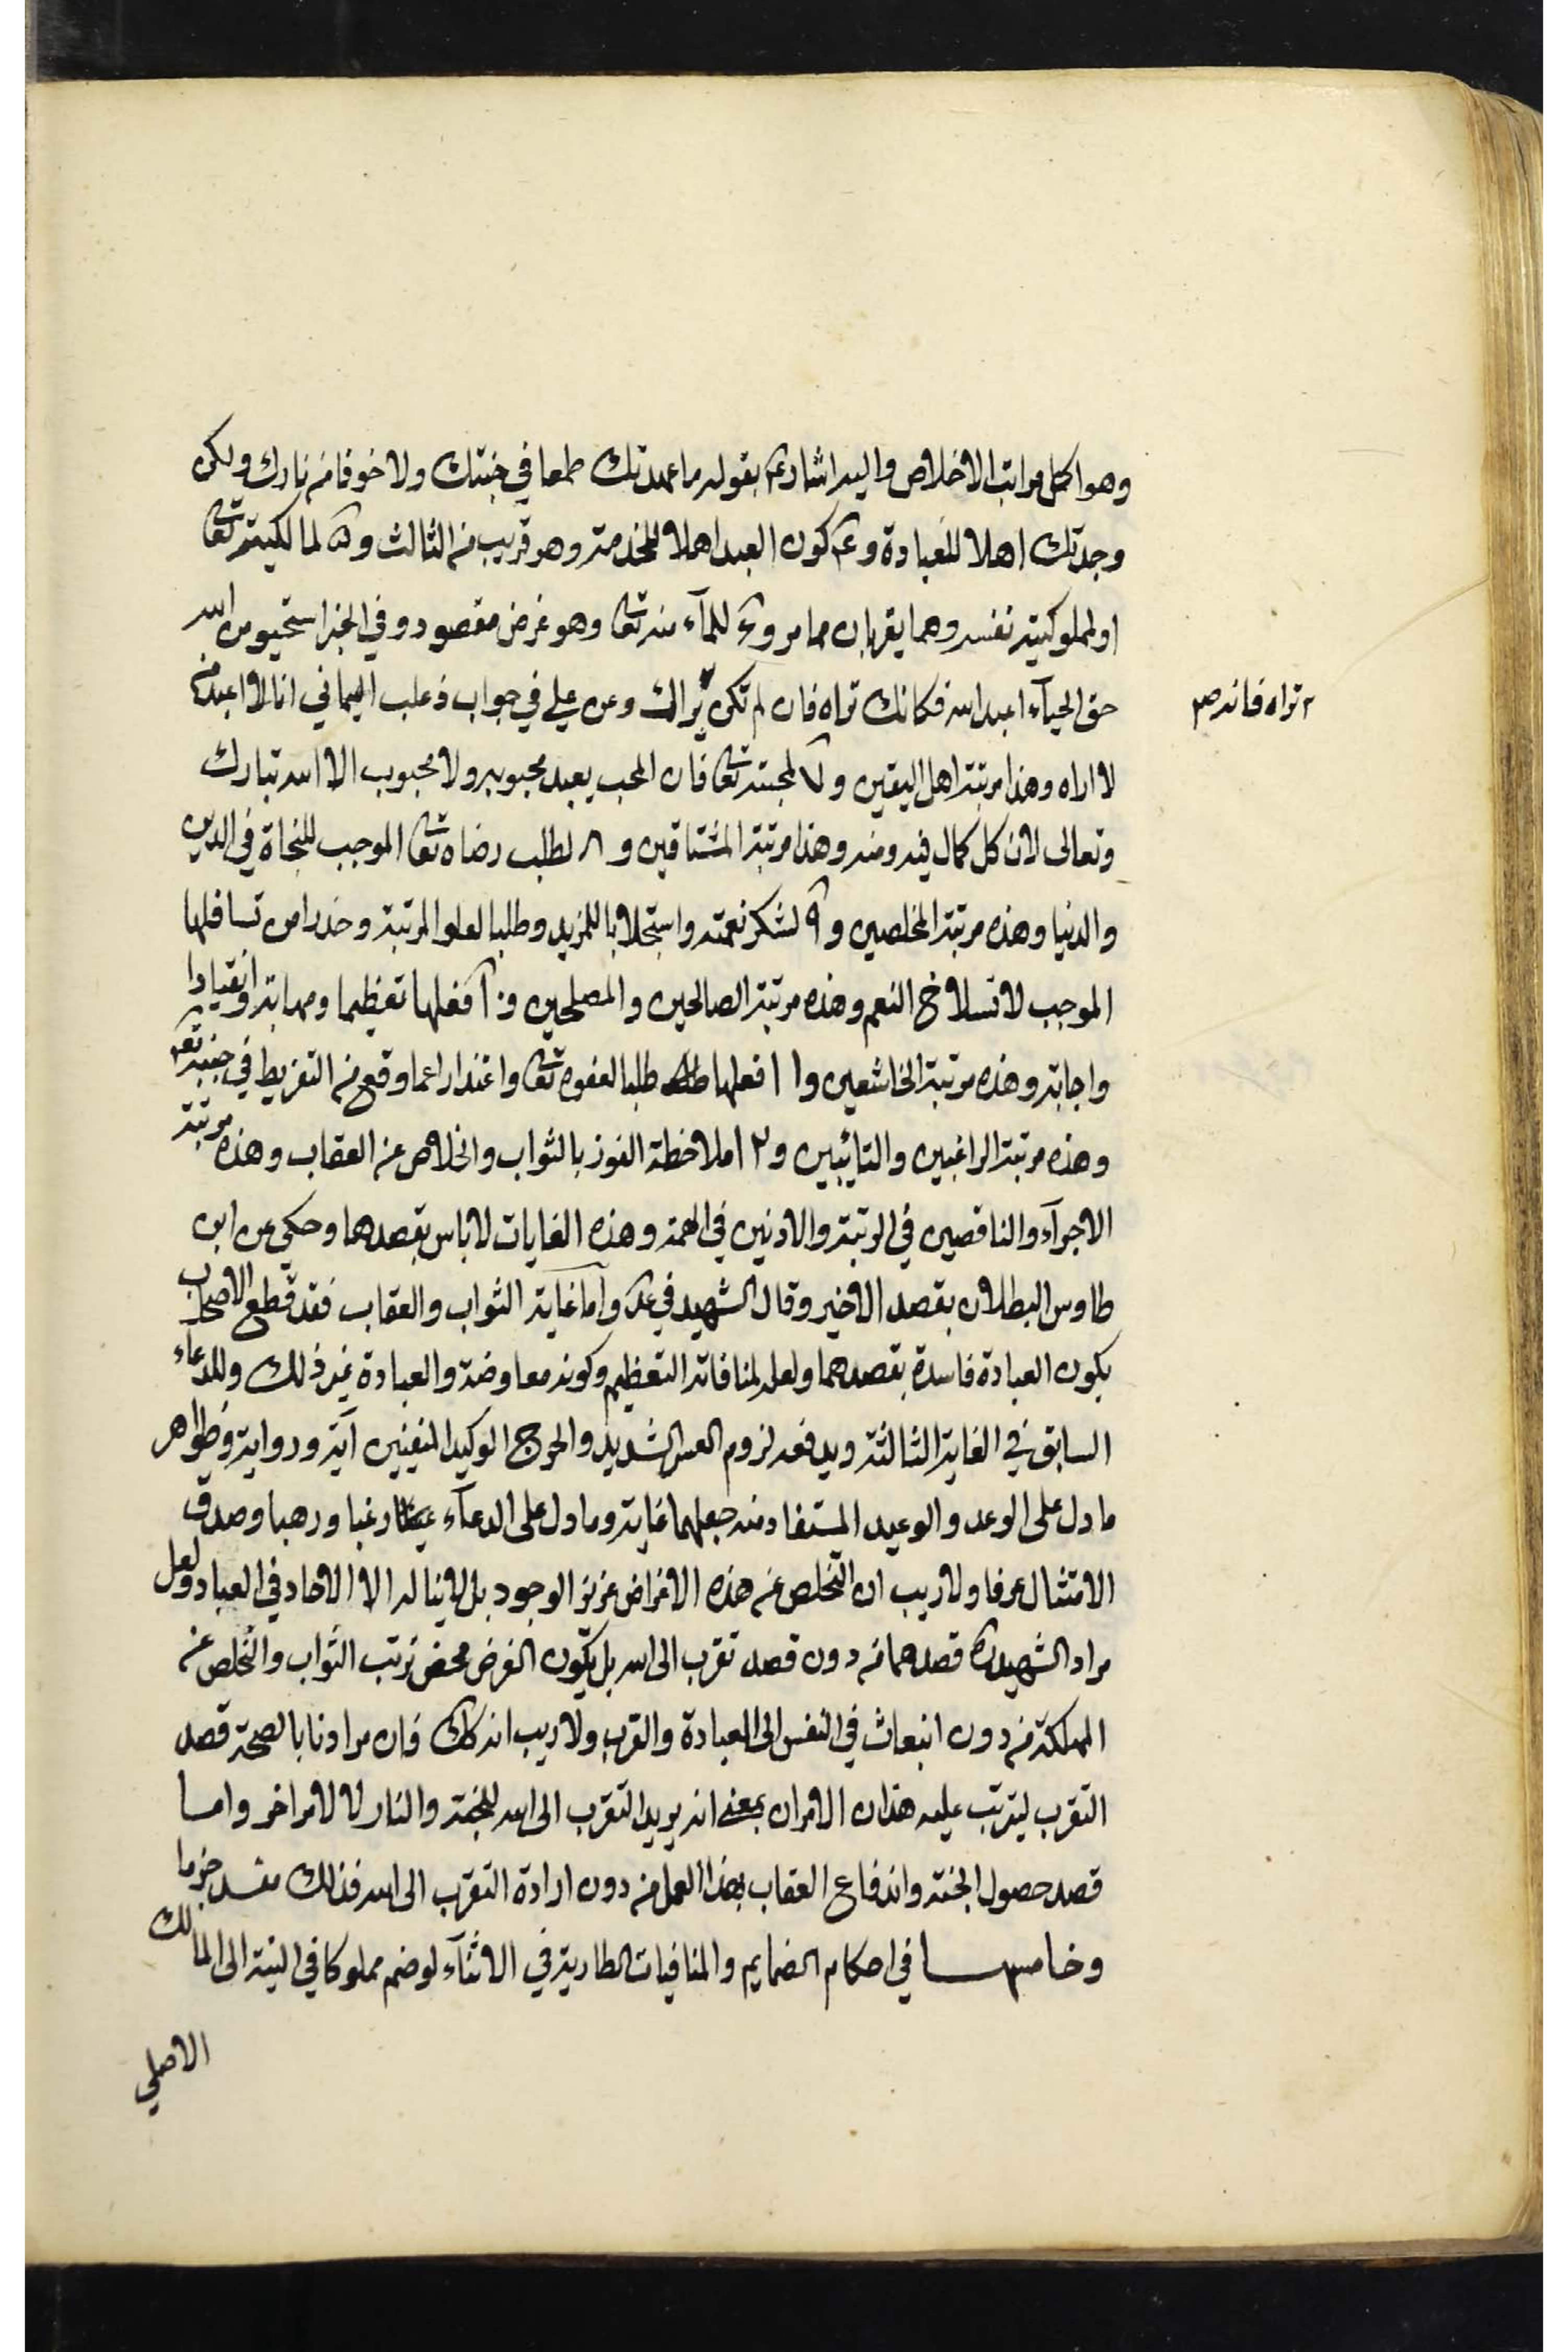 وهو اكمل مراتب الاخلاص واليه اشار ع بقوله ما عبدتك طمعا في جنتك ولا خوفا من نارك ولكن
وجدتك اهلا للعبادة و ٤ كون العبد اهلا للخدمة وهو قريب من الثالث و ٥ لمالكيته تعا
او لمملوكيته نفسه وهما يقربان مما مر و ٦ للحيآء منه تعا وهو غرض مقصود وفي الخبر استحيو من الله
حق الحيآء اعبد الله فكانك تراه فان لم تكن يراك وعن علي في جواب ذعلب اليماني انا لا اعبد من
٢ تراه فانه صح
لا اراه وهذا مرتبة اهل اليقين و ٧ لمحبته تعا فان المحب يعبد محبوبه ولا محبوب الا الله تبارك
وتعالى لان كل كمال فيه ومنه وهذا مرتبة المشتاقين و ٨ لطلب رضاه تعا الموجب للنجاة في الدين
والدنيا وهذه مرتبة المخلصين و ٩ لشكر نعمته واستجلابا للمزيد وطلبا لعلو المرتبة وحذرا من تسافلها
الموجب لانسلاخ النعم وهذه مرتبة الصالحين والمصلحين و ١٠ فعلها تعظيما ومهابة وانقيادا
واجابة وهذه مرتبة الخاشعين و ١١ فعلها طلبا لعفوه تعا واعتذارا عما وقع من التفريط في جنبه تع
وهذه مرتبة الراغبين والتائبين و ١٢ ملاحظة الفوز بالثواب والخلاص عن العقاب وهذه مرتبة
الاجرآء والناقصين في الرتبة والادنين في الهمة وهذه الغايات لا باس بقصدها وحكي عن ابن
طاوس البطلان بقصد الاخير وقال الشهيد في عد واما غاية الثواب والعقاب فقد قطع الاصحاب
بكون العبادة فاسدة بقصدهما ولعله لمنافاته التعظيم وكونه معاوضة والعبادة غير ذلك وللدعاء
السابق في الغاية الثالثة ويدفعه لزوم العسر الشديد والحرج الوكيد المنفيين آية ورواية وظواهر
ما دل على الوعد والوعيد المستفاد منه جعلهما غاية وما دل على الدعآء رغبا ورهبا وصدق
الامتثال عرفا ولا ريب ان التخلص عن هذه الاغراض عزيز الوجود بل لا يناله الا الاحاد في العباد ولعل
مراد الشهيد ره قصدهما من دون قصد تقرب الى الله بل يكون الغرض محض ترتب الثواب والتخلص عن
الهلكة من دون انبعاث في النفس الى العبادة والقرب ولا ريب انه كك فان مرادنا بالصحة قصد
التقرب ليترتب عليه هذان الامران بمعنى انه يريد التقرب الى الله للجنة والنار لا لامر اخر واما
قصد حصول الجنة واندفاع العقاب بهذا العمل من دون ارادة التقرب الى الله فذلك مفسد جزما
وخامسها في احكام الضمايم والمنافيات الطارية في الاثنآء لو ضم مملوكا في النية الى المالك
الاصلي